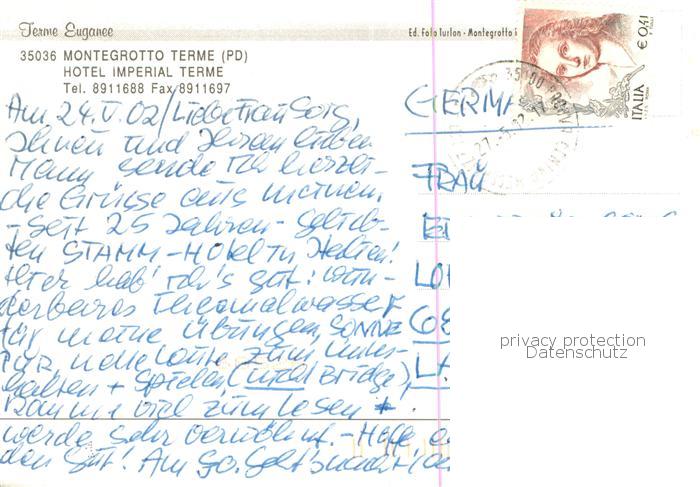 Terme Euganee
Ed. Foto Turlon - Montegrotto
35036 MONTEGROTTO TERME (PD)
HOTEL IMPERIAL TERME
Tel. 8911688 Fax 8911697
€ 0,41
ITALIA
Am 24.V.02/Liebe Frau Sorg,
Ihnen und Ihrem lieben
Mann sende ich herzli-
che Grüsse aus meinem,
- seit 25 Jahren - gelieb-
ten STAMM-HOTEL in Italien!
Hier hab' ich's gut: wun-
derbares Thermalwasser
für meine Übungen, SONNE
für, nette Leute zum Unter-
halten + Spielen (nicht Bridge),
Raum + viel zum Lesen +
werde sehr verwöhnt. - Hoffe,
den gut! Am 30. geht's
GERMA
FRAU
privacy protection
Datenschutz